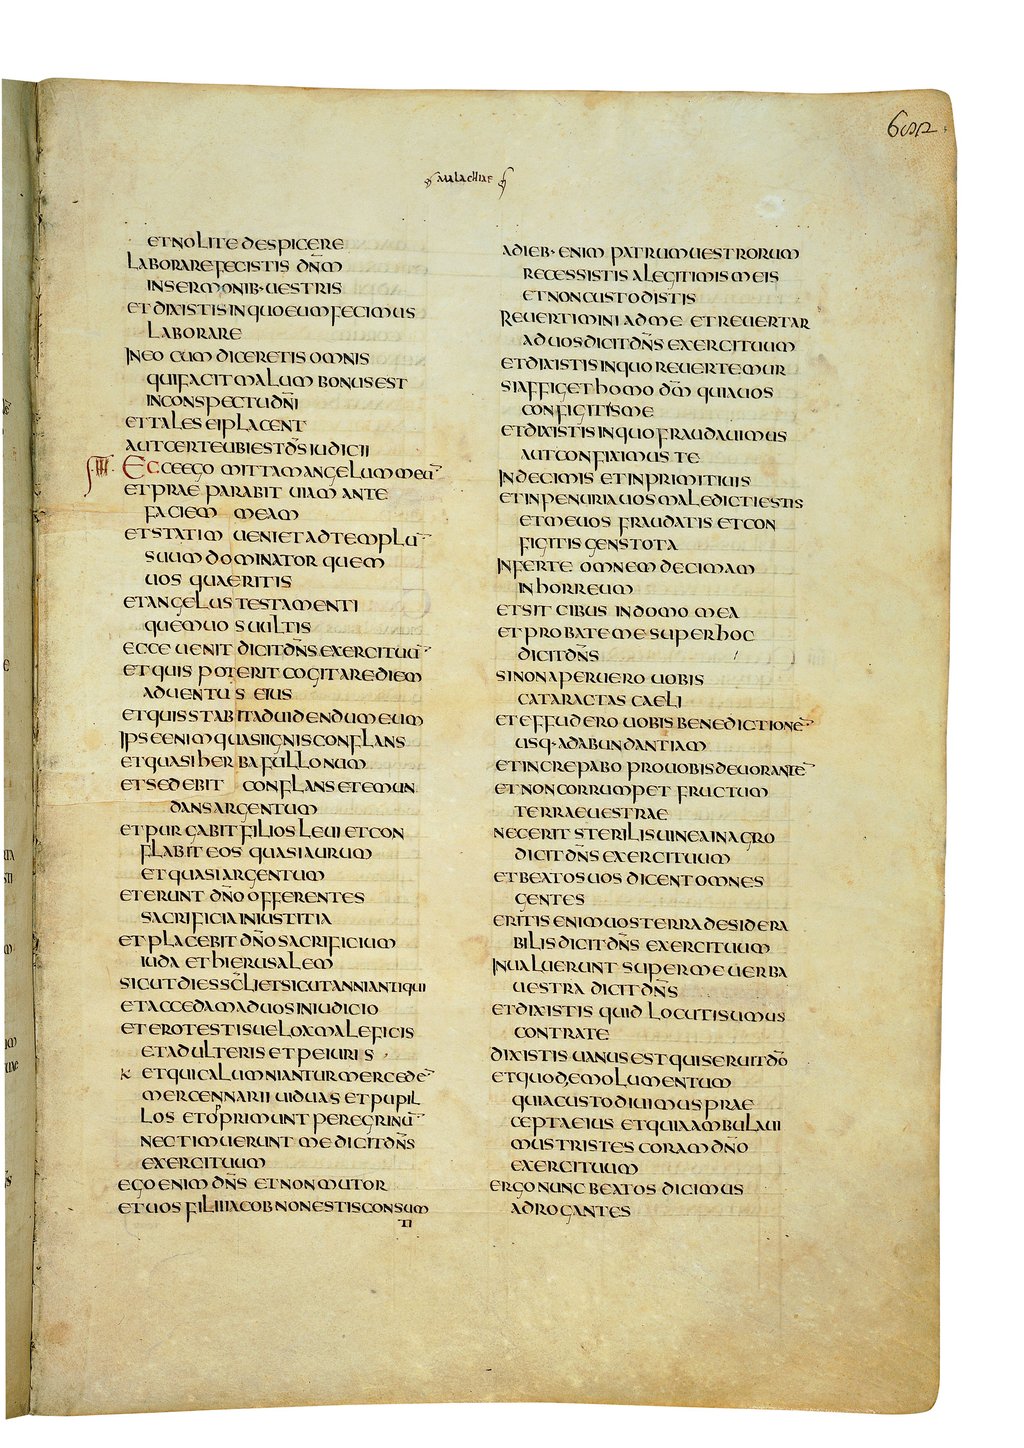 malachiae
ET NOLITE DESPICERE
LABORARE FECISTIS DN̄M
IN SERMONIB· UESTRIS
ET DIXISTIS IN QUO EUM FECIMUS
LABORARE
IN EO CUM DICERETIS OMNIS
QUI FACIT MALUM BONUS EST
IN CONSPECTU DN̄I
ET TALES EI PLACENT
AUT CERTE UBI EST DS̄ IUDICII
III· ECCE EGO MITTAM ANGELUM MEŪ
ET PRAEPARABIT UIAM ANTE
FACIEM MEAM
ET STATIM UENIET AD TEMPLŪ
SUUM DOMINATOR QUEM
UOS QUAERITIS
ET ANGELUS TESTAMENTI
QUEM UOS UULTIS
ECCE UENIT DICIT DN̄S EXERCITUŪ
ET QUIS POTERIT COGITARE DIEM
ADUENTUS EIUS
ET QUIS STABIT AD UIDENDUM EUM
IPSE ENIM QUASI IGNIS CONFLANS
ET QUASI HERBA FULLONUM
ET SEDEBIT CONFLANS ET EMUN
DANS ARGENTUM
ET PURGABIT FILIOS LEUI ET CON
FLABIT EOS QUASI AURUM
ET QUASI ARGENTUM
ET ERUNT DN̄O OFFERENTES
SACRIFICIA IN IUSTITIA
ET PLACEBIT DN̄O SACRIFICIUM
IUDA ET HIERUSALEM
SICUT DIES SC̄LI ET SICUT ANNI ANTIQUI
ET ACCEDAM AD UOS IN IUDICIO
ET ERO TESTIS UELOX MALEFICIS
ET ADULTERIS ET PEIURIS
ET QUI CALUMNIANTUR MERCEDĒ
MERCENNARII UIDUAS ET PUPIL
LOS ET OPPRIMUNT PEREGRINŪ
NEC TIMUERUNT ME DICIT DN̄S
EXERCITUUM
EGO ENIM DN̄S ET NON MUTOR
ET UOS FILII IACOB NON ESTIS CONSUM
TI
A DIEB· ENIM PATRUM UESTRORUM
RECESSISTIS A LEGITIMIS MEIS
ET NON CUSTODISTIS
REUERTIMINI AD ME ET REUERTAR
AD UOS DICIT DN̄S EXERCITUUM
ET DIXISTIS IN QUO REUERTEMUR
SI AFFIGET HOMO DM̄ QUIA UOS
CONFIGITIS ME
ET DIXISTIS IN QUO FRAUDAUIMUS
AUT CONFIXIMUS TE
IN DECIMIS ET IN PRIMITIUIS
ET IN PENURIA UOS MALEDICTI ESTIS
ET ME UOS FRAUDATIS ET CON
FIGITIS GENS TOTA
INFERTE OMNEM DECIMAM
IN HORREUM
ET SIT CIBUS IN DOMO MEA
ET PROBATE ME SUPER HOC
DICIT DN̄S
SI NON APERUERO UOBIS
CATARACTAS CAELI
ET EFFUDERO UOBIS BENEDICTIONĒ
USQ· AD ABUNDANTIAM
ET INCREPABO PRO UOBIS DEUORANTĒ
ET NON CORRUMPET FRUCTUM
TERRAE UESTRAE
NEC ERIT STERILIS UINEA IN AGRO
DICIT DN̄S EXERCITUUM
ET BEATOS UOS DICENT OMNES
GENTES
ERITIS ENIM UOS TERRA DESIDERA
BILIS DICIT DN̄S EXERCITUUM
INUALUERUNT SUPER ME UERBA
UESTRA DICIT DN̄S
ET DIXISTIS QUID LOCUTI SUMUS
CONTRA TE
DIXISTIS UANUS EST QUI SERUIT DŌ
ET QUOD EMOLUMENTUM
QUIA CUSTODIUIMUS PRAE
CEPTA EIUS ET QUIA AMBULAUI
MUS TRISTES CORAM DN̄O
EXERCITUUM
ERGO NUNC BEATOS DICIMUS
ADROGANTES